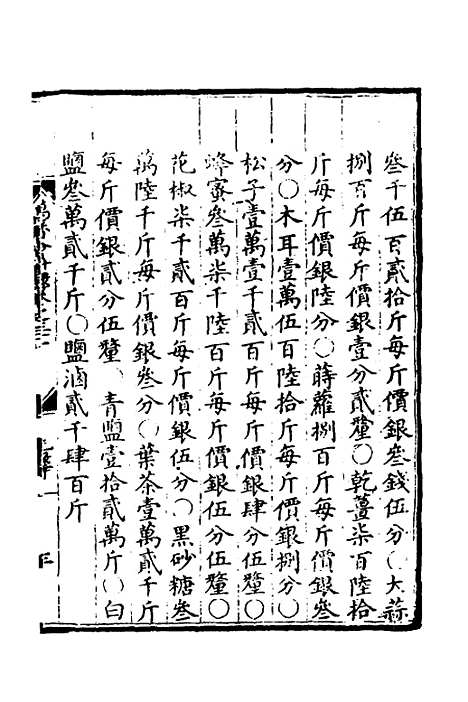 叄千伍百貳拾斤每斤價銀叄錢伍分〇大蒜
捌百斤每斤價銀壹分貳釐〇乾薑柒百陸拾
斤每斤價銀陸分〇蒔蘿捌百斤每斤價銀叄
分〇木耳壹萬伍百陸拾斤每斤價銀捌分〇
松子壹萬壹千貳百斤每斤價銀肆分伍釐〇
蜂蜜叄萬柒千陸百斤每斤價銀伍分伍釐〇
花椒柒千貳百斤每斤價銀伍分〇黒砂糖叄
萬陸千斤每斤價銀叄分〇葉茶壹萬貳千斤
每斤價銀貳分伍釐〇青盬壹拾貳萬斤〇白
鹽叄萬貳千斤〇鹽滷貳千肆百斤